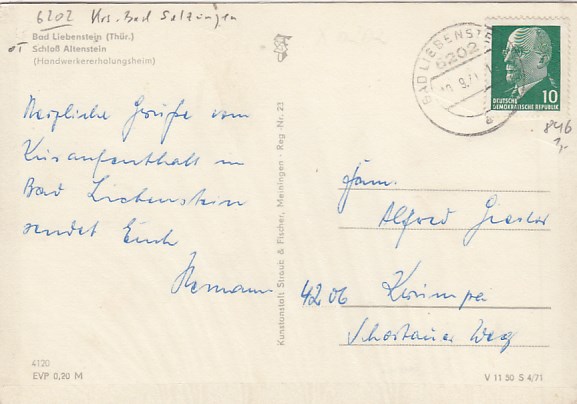 6202 Krs. Bad Salzungen
Bad Liebenstein (Thür.)
OT Schloß Altenstein
(Handwerkererholungsheim)
Herzliche Grüße vom
Kuraufenthalt in
Bad Liebenstein
sendet Euch
Hermann
4120
EVP 0,20 M
Kunstanstalt Straub & Fischer, Meiningen · Reg.-Nr. 23
BAD LIEBENSTEIN
6202
9.71
a
10
DEUTSCHE
DEMOKRATISCHE REPUBLIK
846
1,-
Fam.
Alfred Giesler
4206 Krumpa
Schortauer Weg
V 11 50 S 4/71